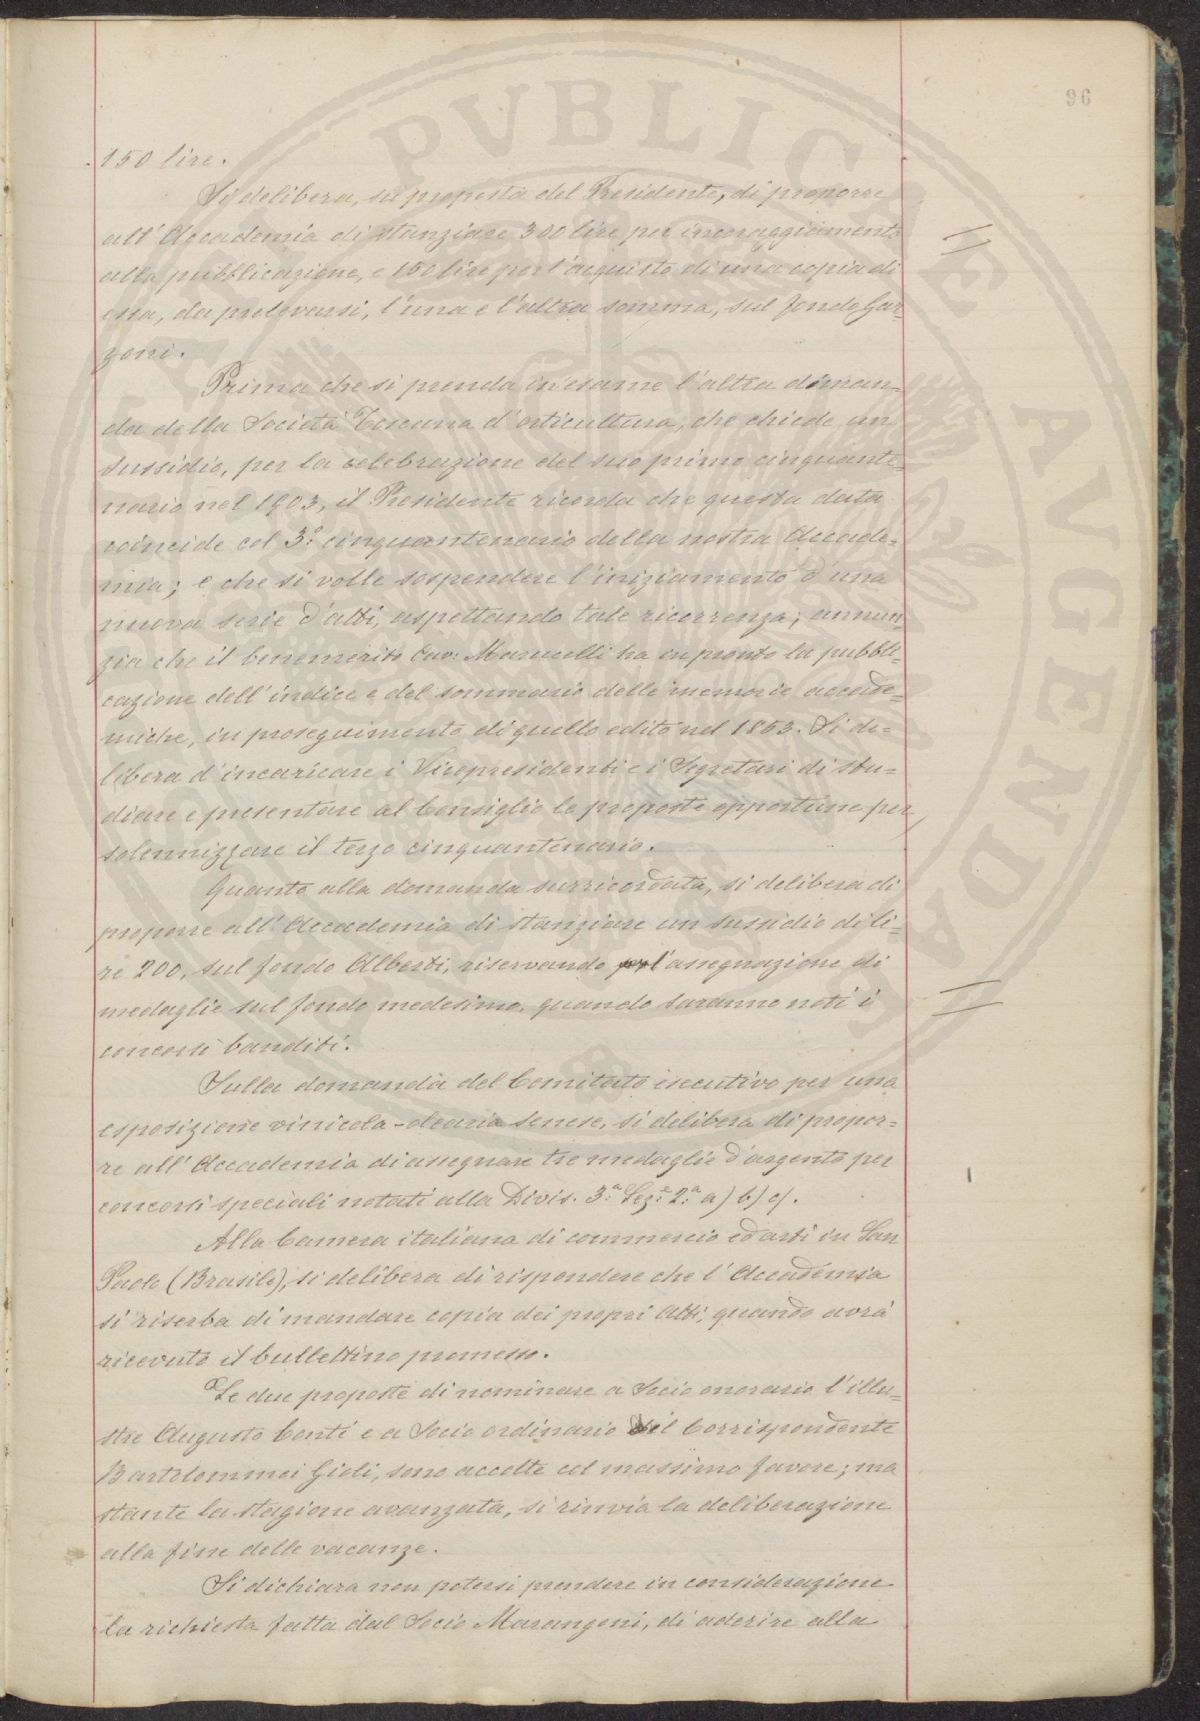 96
150 lire.
Si delibera, su proposta del Presidente, di proporre
all'Accademia di stanziare 300 lire per incoraggiamento
alla pubblicazione, e 150 lire per l'acquisto di una copia di
essa, da prelevarsi, l'una e l'altra somma, sul fondo Gar-
zoni.
Prima che si prenda in esame l'altra diman-
da della Società Toscana d'orticultura, che chiede un
sussidio, per la celebrazione del suo primo cinquante-
nario nel 1903, il Presidente ricorda che questa data
coincide col 3.° cinquantenario della nostra Accade=
mia; e che si volle sospendere l'iniziamento d'una
nuova serie d'atti, aspettando tale ricorrenza; annun
zia che il benemerito Cav: Marucelli ha in pronto la pubbli=
cazione dell'indice e del sommario delle memorie accade=
miche, in proseguimento di quello edito nel 1853. Si de=
libera d'incaricare i Vicepresidenti e i Segretari di stu=
diare e presentare al Consiglio le proposte opportune per
solennizzare il terzo cinquantenario.
Quanto alla domanda surricordata, si delibera di
proporre all'Accademia di stanziare un sussidio di li=
re 200, sul fondo Alberti, riservando l'assegnazione di
medaglie sul fondo medesimo, quando saranno noti i
concorsi banditi.
Sulla domanda del Comitato esecutivo per una
esposizione vinicola-olearia senese, si delibera di propor=
re all'Accademia di assegnare tre medaglie d'argento per
concorsi speciali notati alla Divis. 3.ª Sez.e 2.ª a) b) c).
Alla Camera italiana di commercio ed arti in San
Paolo (Brasile), si delibera di rispondere che l'Accademia
si riserba di mandare copia dei propri Atti, quando avrà
ricevuto il bullettino promesso.
Le due proposte di nominare a Socio onorario l'illu=
stre Augusto Conti e a Socio ordinario il Corrispondente
Bartolommei Gioli, sono accolte col massimo favore; ma
stante la stagione avanzata, si rinvia la deliberazione
alla fine delle vacanze.
Si dichiara non potersi prendere in considerazione
la richiesta fatta dal Socio Marangoni, di aderire alla
PVBLICAE AVGENDAE